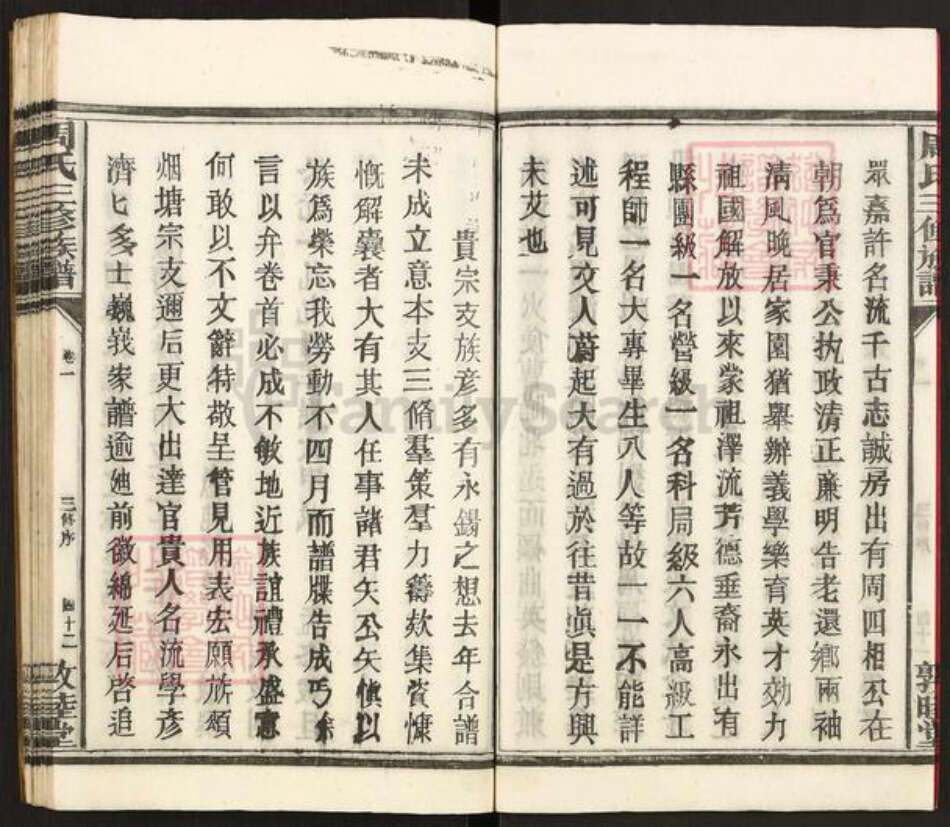 周氏三修族譜
眾嘉許名流千古志誠房出有周四相公在
朝爲官秉公执政清正廉明告老還鄉兩袖
清風晚居家園猶舉辦義學樂育英才効力
祖國解放以來蒙祖澤流芳德垂裔永出有
縣團級一名營級一名科局級六人高級工
程師一名大專畢生八人等故一一不能詳
述可見文人蔚起大有過於往昔慎是方興
未艾也
貴宗支族彦多有永錫之想去年合譜
未成立意本支三脩羣策羣力籌欵集資慷
慨解囊者大有其人任事諸君矢公矢慎以
族爲榮忘我勞動不四月而譜牒告成丐余
言以弁卷首必成不敏地近族誼禮承盛意
何敢以不文辭特敬呈管見用表宏願族頌
烟塘宗支邇后更大出達官貴人名流學彦
濟匕多士巍峩家譜逾迆前徽綿延后啓追
周氏三修族譜
卷一
三修序
四十二
敦睦堂
FamilySearch